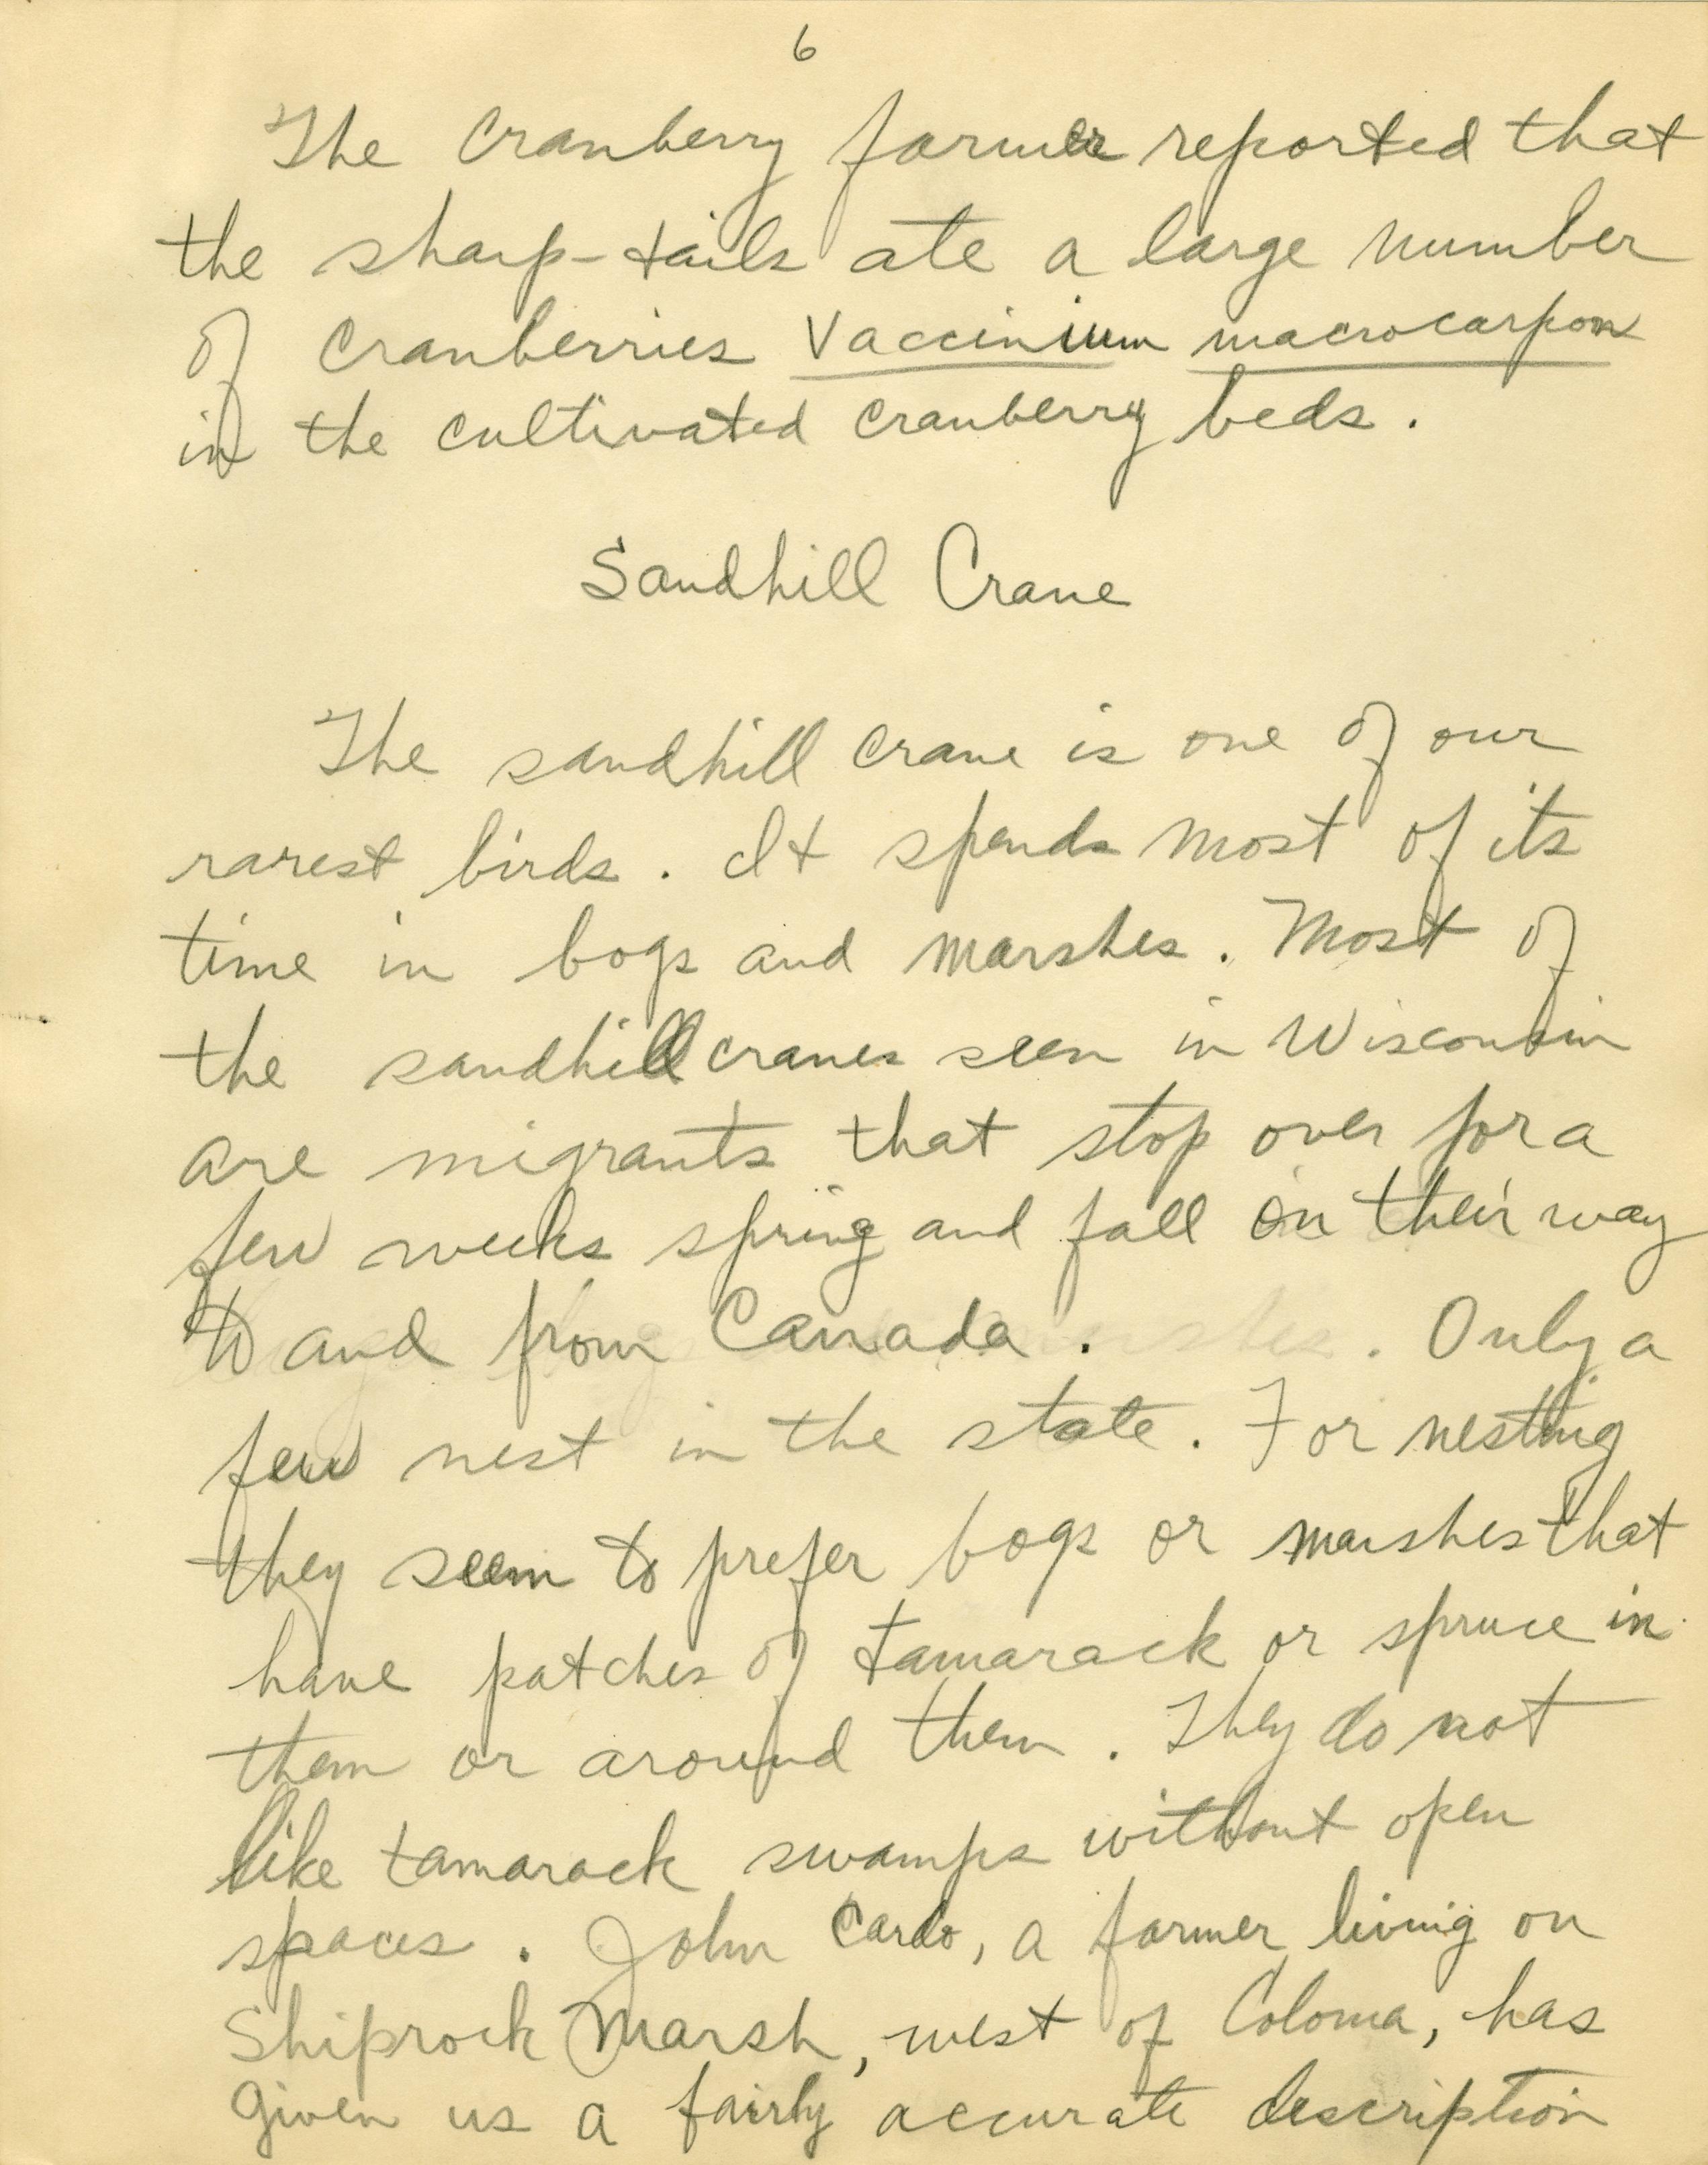 6
The Cranberry farmer reported that
the sharp-tails ate a large number
of Cranberries Vaccinium macrocarpon
in the cultivated cranberry beds.
Sandhill Crane
The sandhill crane is one of our
rarest birds. It spends most of its
time in bogs and marshes. Most of
the sandhill cranes seen in Wisconsin
are migrants that stop over for a
few weeks spring and fall on their way
to and from Canada. . Only a
few nest in the state. For nesting
they seem to prefer bogs or marshes that
have patches of tamarack or spruce in
them or around them. They do not
like tamarack swamps without open
spaces. John Cardo, a farmer living on
Shiprock Marsh, west of Coloma, has
given us a fairly accurate description